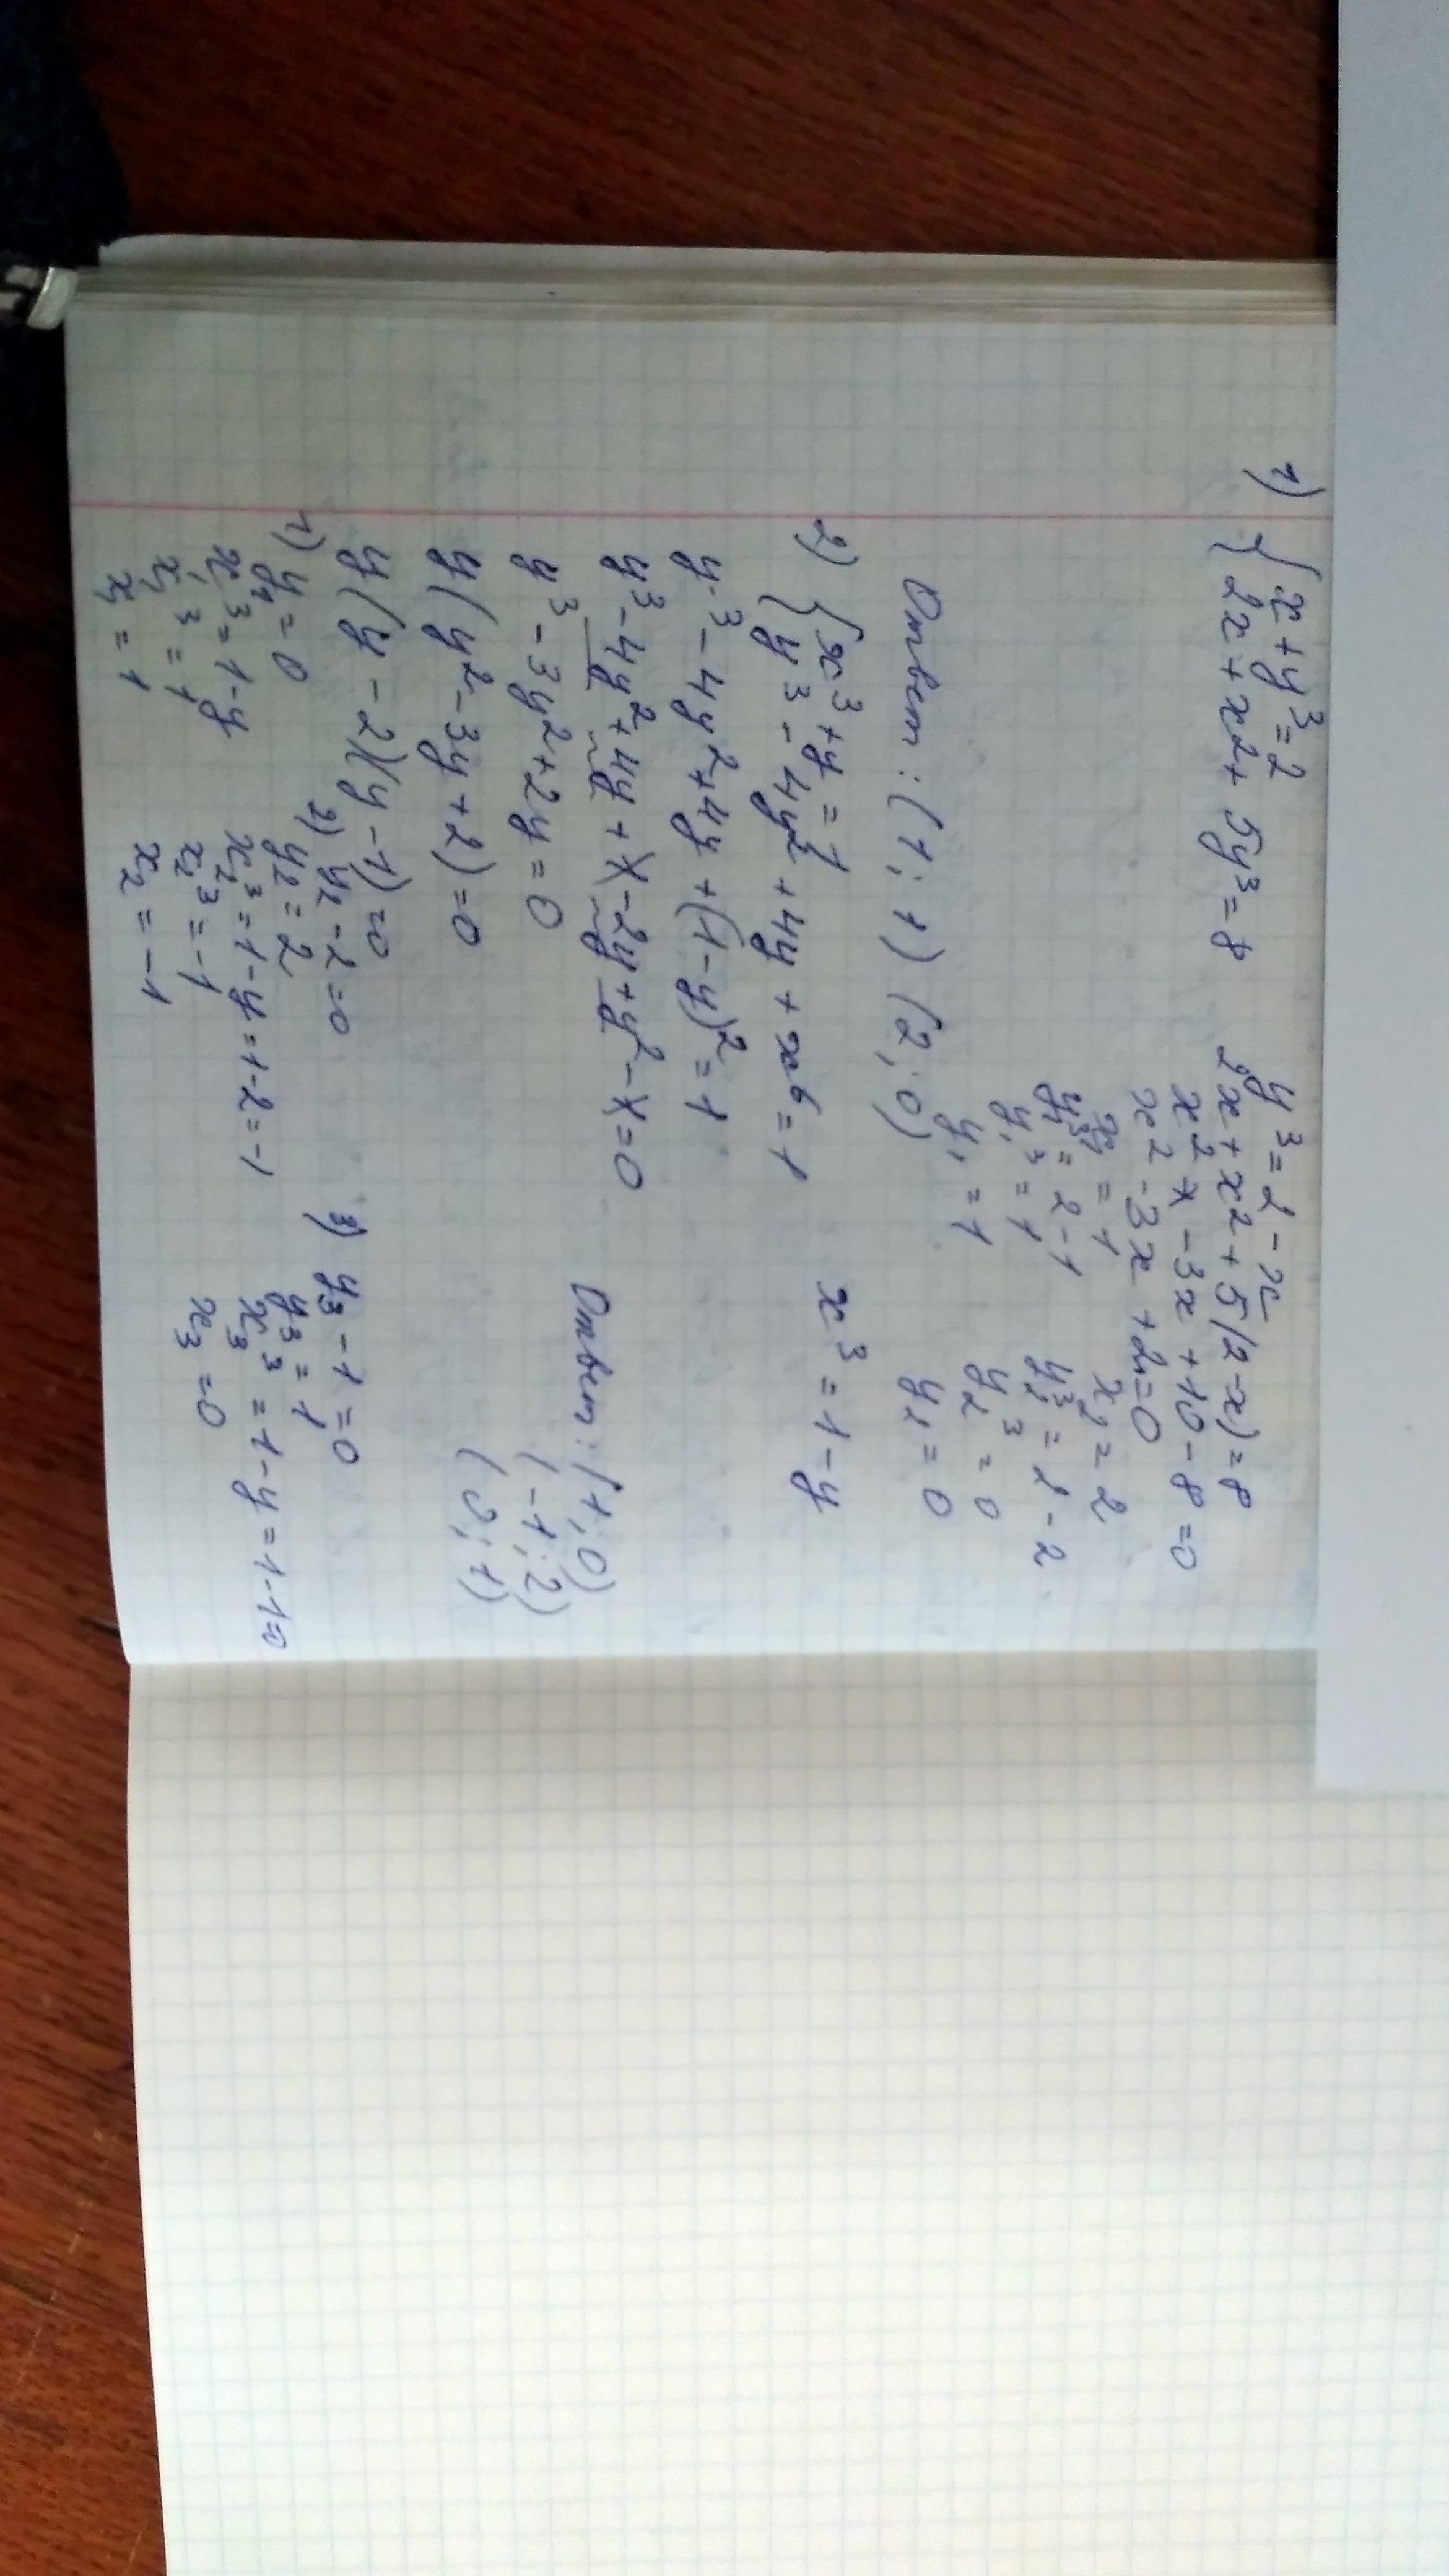 1) { x + y³ = 2
2x + x² + 5y³ = 8
y³ = 2 - x
2x + x² + 5(2-x) = 8
x² + x - 3x + 10 - 8 = 0
x² - 3x + 2 = 0
x₁ = 1
x₂ = 2
y₁³ = 2 - 1
y₂³ = 2 - 2
y₁³ = 1
y₂³ = 0
y₁ = 1
y₂ = 0
Ответ: (1; 1) (2; 0)
2) { x³ + y = 1
y³ - 4y² + 4y + x⁶ = 1
x³ = 1 - y
y³ - 4y² + 4y + (1-y)² = 1
y³ - 4y² + 4y + 1 - 2y + y² - 1 = 0
y³ - 3y² + 2y = 0
y(y² - 3y + 2) = 0
y(y - 2)(y - 1) = 0
Ответ: (1; 0)
(-1; 2)
(0; 1)
1) y₁ = 0
x₁³ = 1 - y
x₁³ = 1
x₁ = 1
2) y₂ - 2 = 0
y₂ = 2
x₂³ = 1 - y = 1 - 2 = -1
x₂³ = -1
x₂ = -1
3) y₃ - 1 = 0
y₃ = 1
x₃³ = 1 - y = 1 - 1 = 0
x₃ = 0